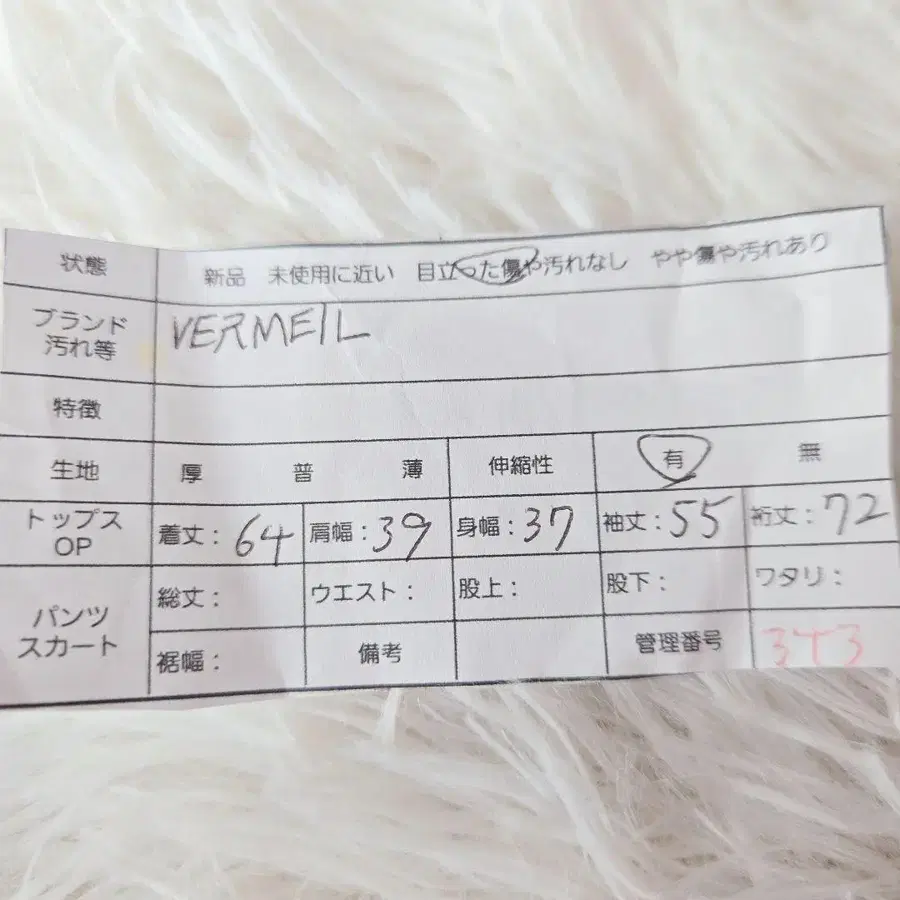 状態 新品 未使用に近い 目立った傷や汚れなし やや傷や汚れあり
ブランド VERMEIL
汚れ等
特徴
生地 厚 普 薄 伸縮性 有 無
トップス
OP 着丈: 64 肩幅: 39 身幅: 37 袖丈: 55 裄丈: 72
パンツ
スカート
総丈: ウエスト: 股上: 股下: ワタリ:
裾幅: 備考 管理番号 3T3